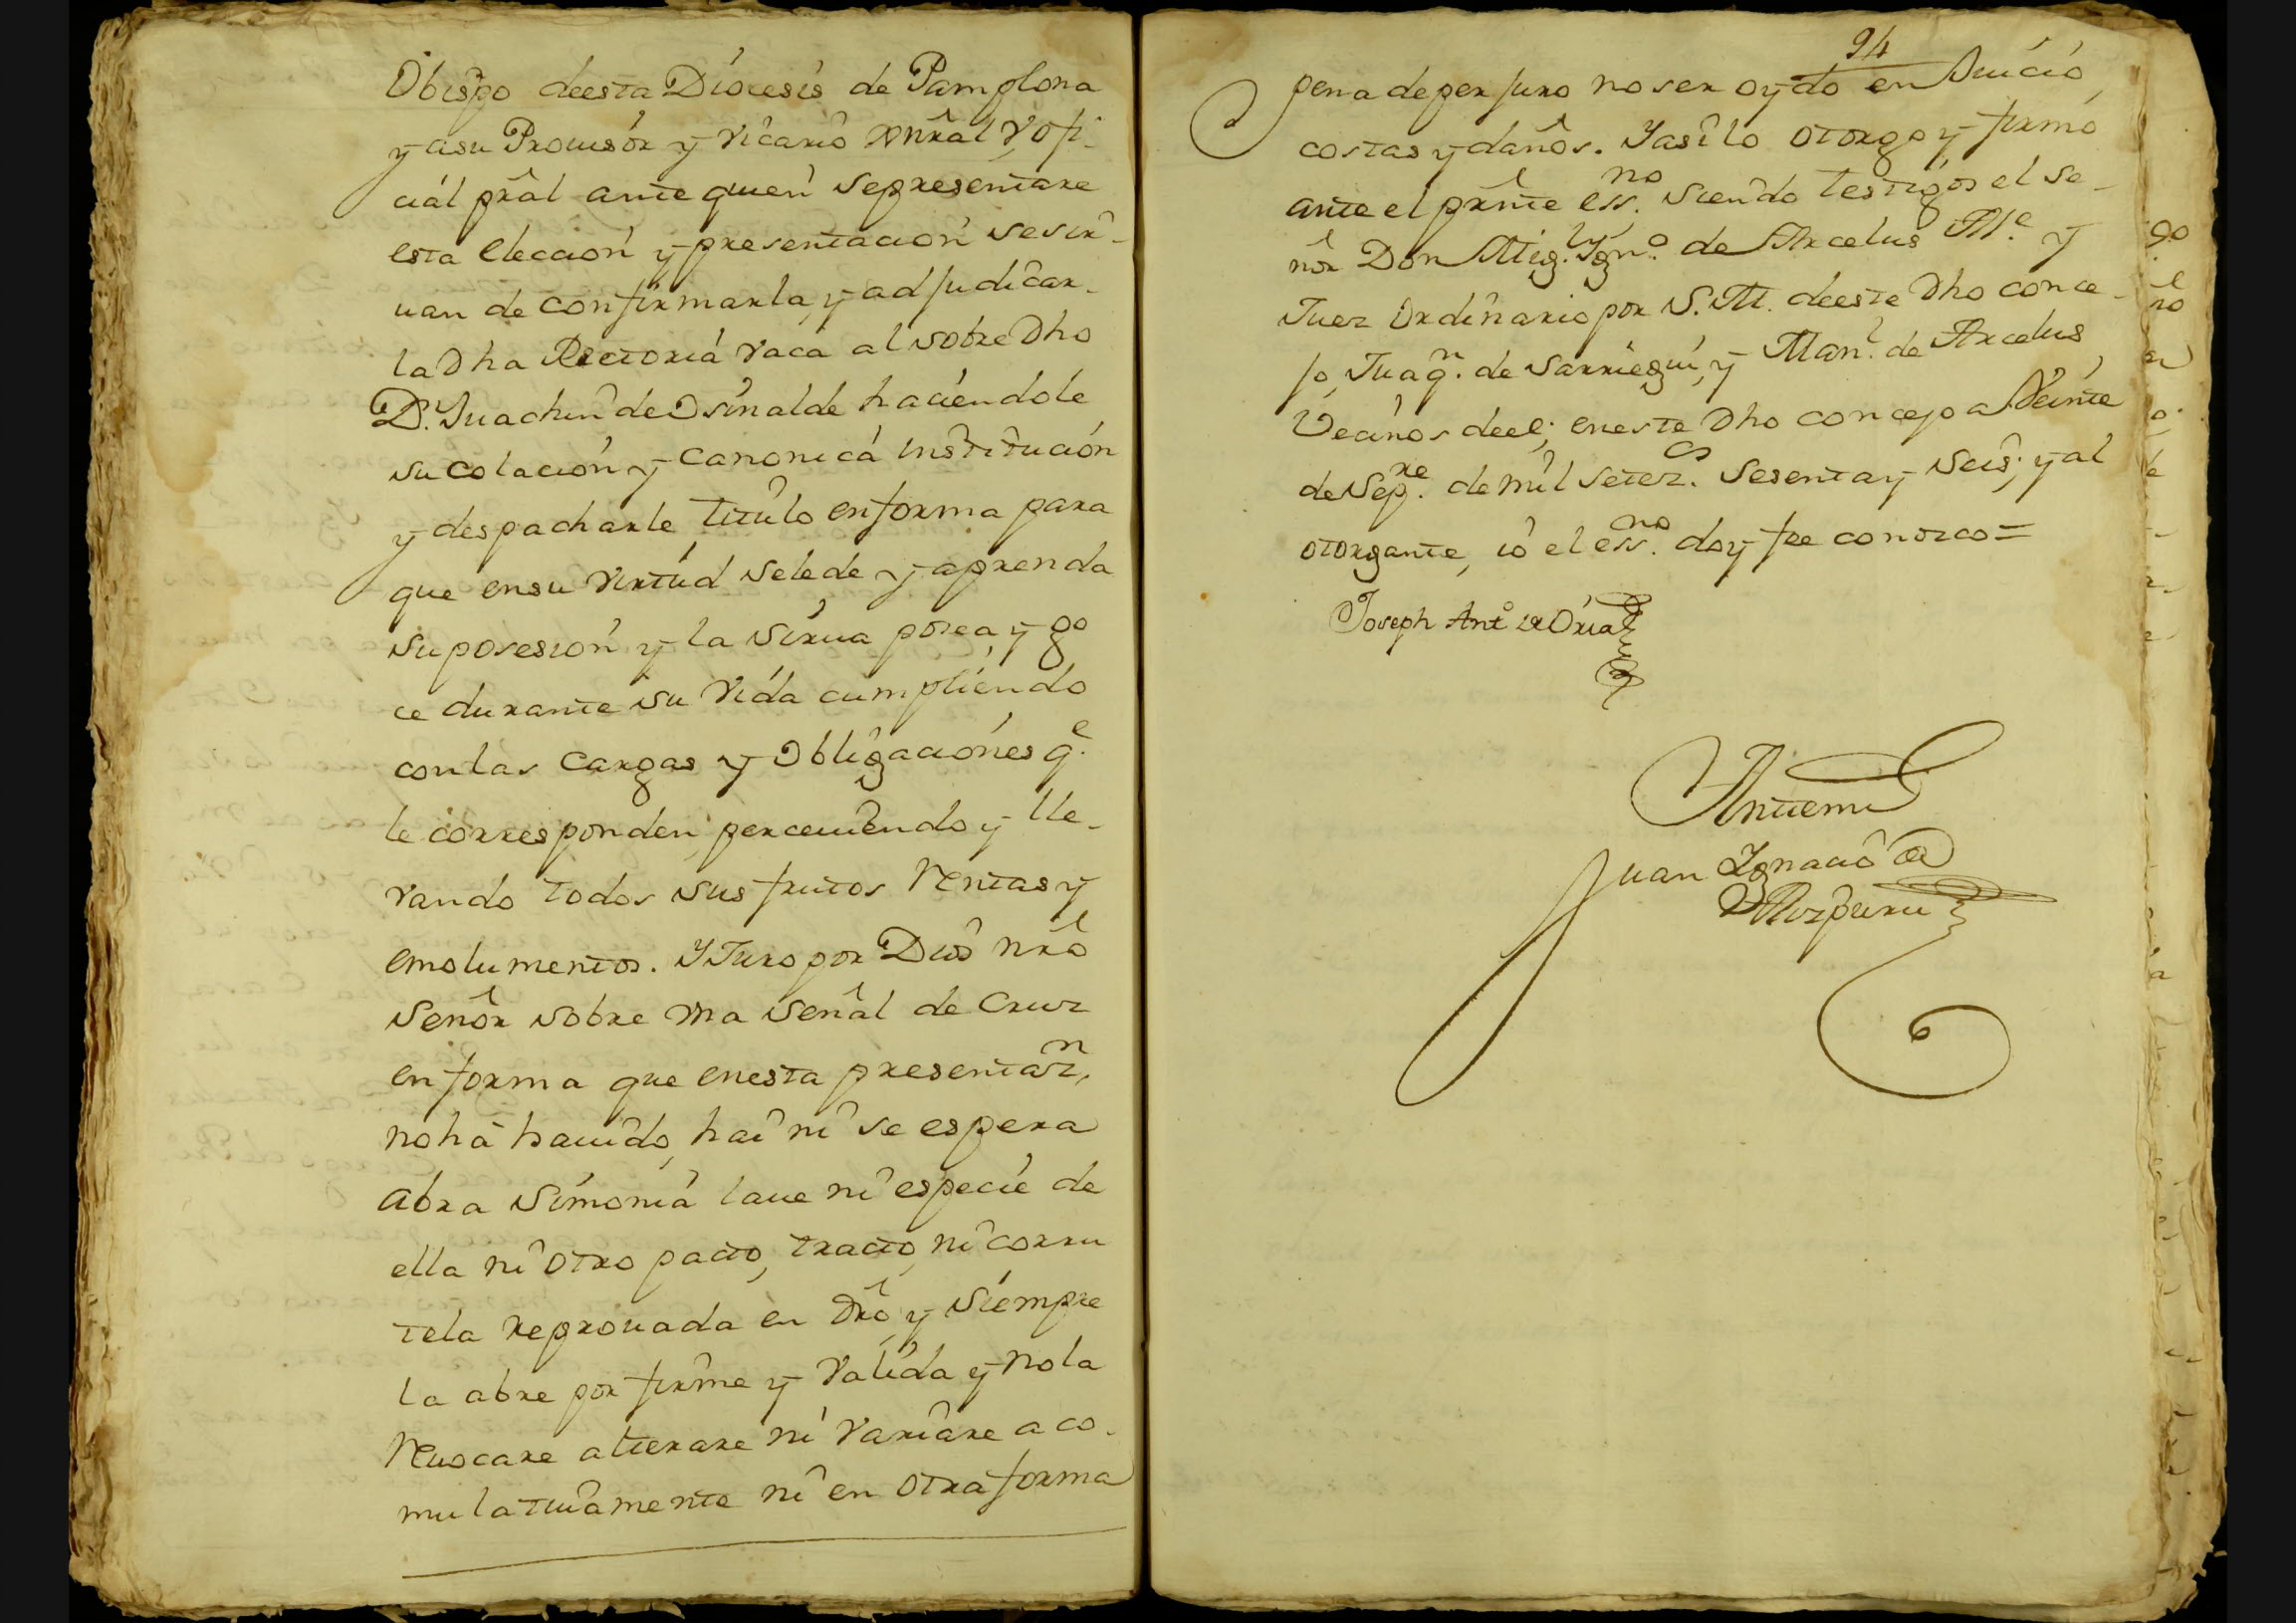 Obispo deesta Diocesis de Pamplona
y asu Provisór y Vicario Gnral, y ofi-
ciál prâl ante quien se presentare
esta Eleccion y presentacion se sir-
van de confirmarla, y adjudicar-
la Dha Rectoria vaca al sobre Dho
D.n Juachin de Osinalde haciendole
su colación y canonica institución
y despacharle titulo en forma para
que ensu virtud sele de y aprenda
su posesión y la sirva posea, y go
ce durante su vida cumpliendo
con las cargas y Obligaciónes q.e
le corresponden, perceviendo y lle-
vando todos sus frutos Rentas y
emolumentos. Y Juro por Dios nrô
Señor sobre vna Señal de Cruz
en forma que enesta presentaz.n
no há havido, hai ni se espera
abra Simonia lave ni especie de
ella ni otro pacto, tracto, ni corru
tela reprovada en Drô, y Siempre
la abre por firme y Valida y no la
Revocare alterare ni Variare a co-
mulativamente ni en otra forma
94
pena de perjuro no ser oydo en Juicio,
costas y daños. Y asi lo otorgo y firmó
ante el prnte ess.no siendo testigos el se-
ñor Don Mig.l Ygn.o de Arcelus Al.e y
Juez Ordinario por S. M. deeste Dho conce-
jo, Juaq.n de Sarriegui, y Man.l de Arcelus
Vecinos deel; eneste Dho concejo a Veinte
de Sep.re de mil setez.s Sesenta y Seis; y al
otorgante, io el ess.no doy fee conozco=
Joseph Ant.o de Oria
Antemi
Juan Ygnacio de